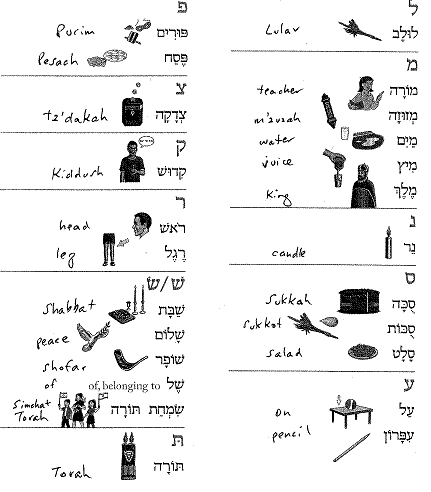 ל
Lulav לוּלָב
מ
teacher מוֹרָה
m'zuzah מְזוּזָה
water מַיִם
juice מִיץ
King מֶלֶךְ
נ
candle נֵר
ס
Sukkah סֻכָּה
Sukkot סֻכּוֹת
salad סָלָט
ע
on עַל
pencil עִפָּרוֹן
פ
Purim פּוּרִים
Pesach פֶּסַח
צ
tz'dakah צְדָקָה
ק
Kiddush קִדּוּשׁ
ר
head רֹאשׁ
leg רֶגֶל
שׁ/שׂ
Shabbat שַׁבָּת
peace שָׁלוֹם
shofar שׁוֹפָר
of of, belonging to שֶׁל
Simchat Torah שִׂמְחַת תּוֹרָה
ת
Torah תּוֹרָה